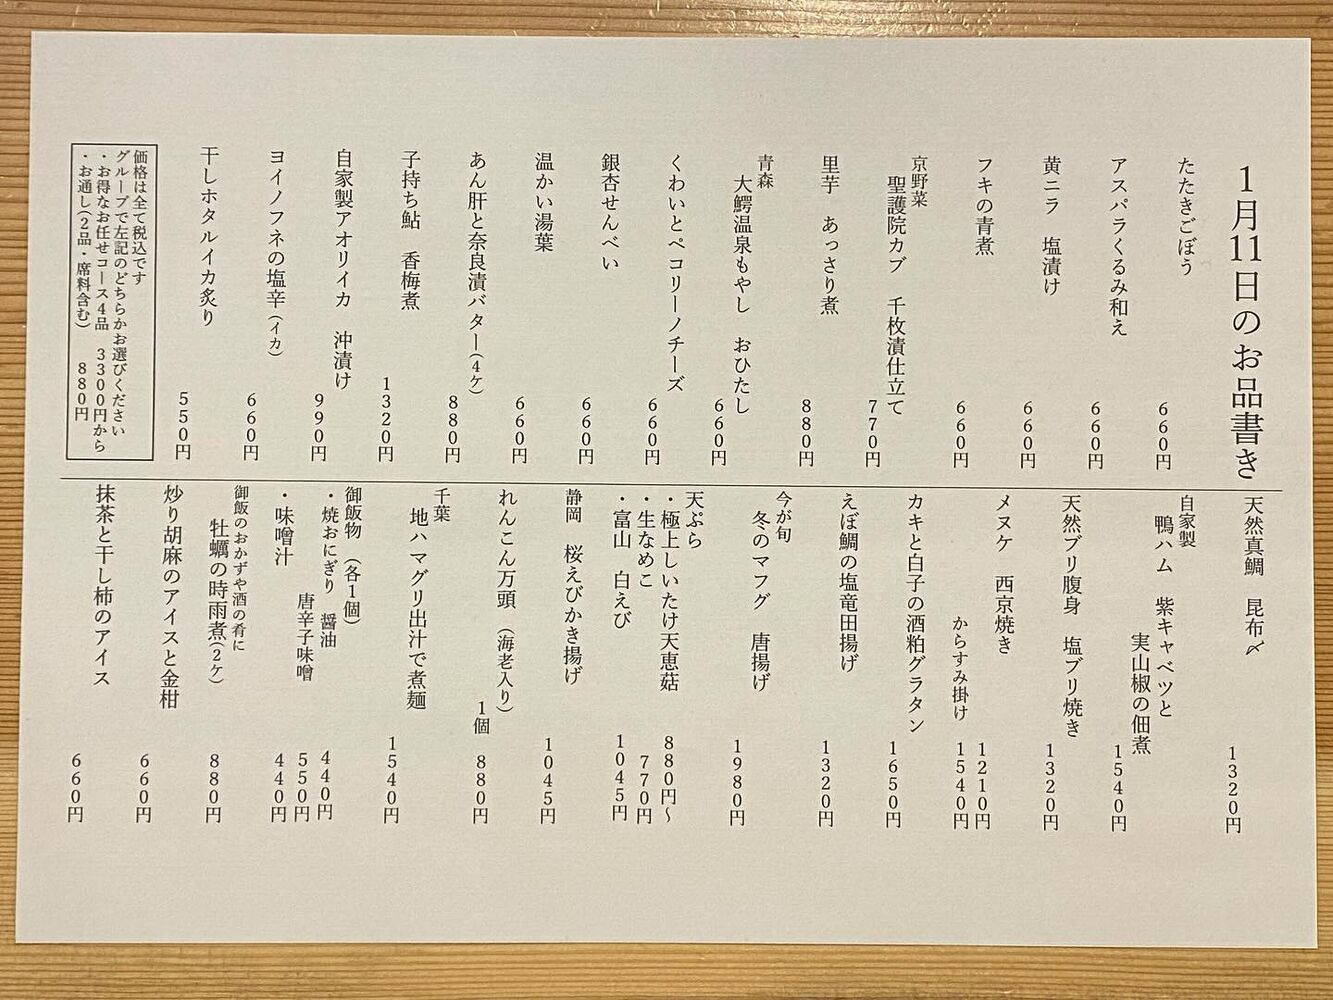 1月11日のお品書き
たたきごぼう 660円
アスパラくるみ和え 660円
黄ニラ 塩漬け 660円
フキの青煮 660円
京野菜
聖護院カブ 千枚漬仕立て 770円
里芋 あっさり煮 880円
青森
大鰐温泉もやし おひたし 660円
くわいとペコリーノチーズ 660円
銀杏せんべい 660円
温かい湯葉 660円
あん肝と奈良漬バター(4ケ) 880円
子持ち鮎 香梅煮 1320円
自家製アオリイカ 沖漬け 990円
ヨイノフネの塩辛(イカ) 660円
干しホタルイカ炙り 550円
価格は全て税込です
グループで左記のどちらかお選びください
・お得なお任せコース4品 3300円から
・お通し(2品・席料含む) 880円
天然真鯛 昆布〆 1320円
自家製
鴨ハム 紫キャベツと
実山椒の佃煮 1540円
天然ブリ腹身 塩ブリ焼き 1320円
メヌケ 西京焼き 1210円
からすみ掛け 1540円
カキと白子の酒粕グラタン 1650円
えぼ鯛の塩竜田揚げ 1320円
今が旬
冬のマフグ 唐揚げ 1980円
天ぷら
・極上しいたけ天恵菇 880円〜
・生なめこ 770円
・富山 白えび 1045円
静岡 桜えびかき揚げ 1045円
れんこん万頭 (海老入り)
1個 880円
千葉
地ハマグリ出汁で煮麺 1540円
御飯物 (各1個)
・焼おにぎり 醤油 440円
唐辛子味噌 550円
・味噌汁 440円
御飯のおかずや酒の肴に
牡蠣の時雨煮(2ケ) 880円
炒り胡麻のアイスと金柑 660円
抹茶と干し柿のアイス 660円